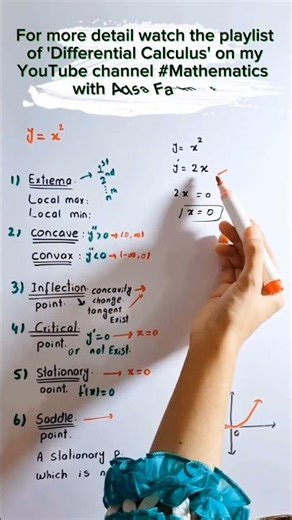 For more detail watch the playlist
of 'Differential Calculus' on my
YouTube channel #Mathematics
with
y = x²
1) Extrema → 1st
2nd
nth
Local max:
Local min:
2) Concave: y''>0 → (0,∞)
Convox: y''<0 (-∞,0)
3) Inflection concavity →
point. change
tangent
Exist
4) Critical y'=0 → x=0
point. or not Exist.
5) Stationary → x=0
point. f'(x)=0
6) Saddle →
point.
A stationary
which is
y = x²
y' = 2x
2x = 0
x = 0
0